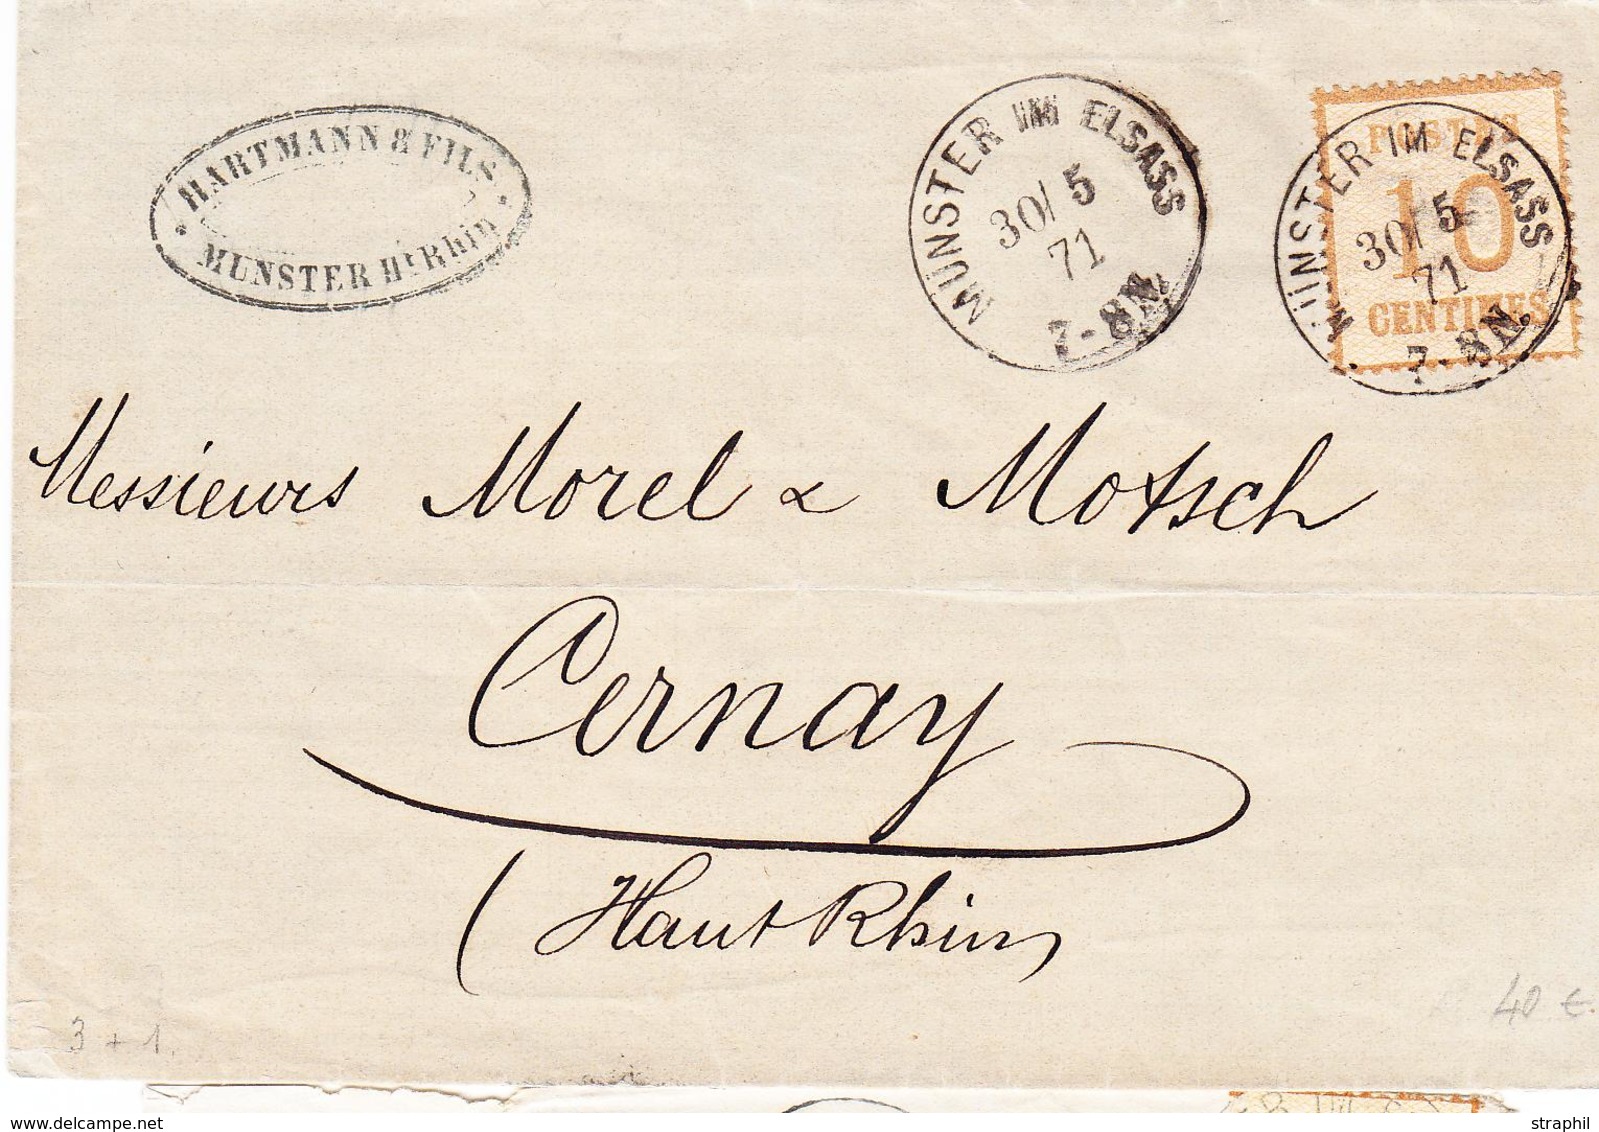 HARTMANN & FILS
MUNSTER Ht Rhin
MÜNSTER IM ELSASS
30/5
71
7-8N.
POSTES
10
CENTIMES
MÜNSTER IM ELSASS
30/5
71
7-8N.
Messieurs Morel & Motsch
Cernay
(Haut Rhin)
3 + 1.
40 €.
delcampe.net
straphil